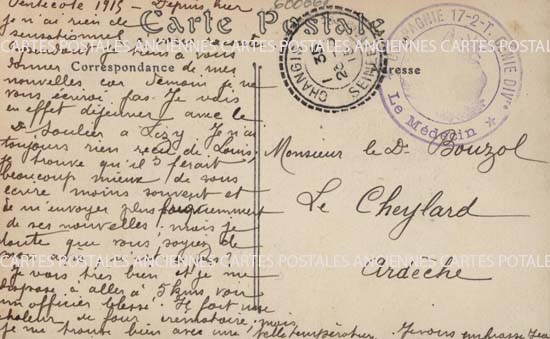 Pentecôte 1915 – Depuis hier
je n'ai rien de
sensationnel
à vous
donner de mes
nouvelles car demain je ne
vous écrirai pas. Je vais
en effet déjeuner avec le
Dr Soulier à Lizy. Je n'ai
toujours rien reçu de Louis;
je trouve qu'il ferait
beaucoup mieux de vous
écrire moins souvent et
de m'envoyer plus fréquemment
de ses nouvelles; mais je
doute que vous soyez de
mon avis
Je vais très bien et je me
dispose à aller à 5 kms voir
un officier blessé. Il fait une
chaleur de four crématoire, mais
je me trouve bien avec une telle température. Je vous embrasse
Carte Postale
Correspondance
Adresse
CHANGIS
SEINE
COMPAGNIE 17-2-T.
Le Médecin
Monsieur le Dr Bouzol
Le Cheylard
Ardèche
ANCIENNES CARTES POSTALES ANCIENNES CARTES POSTALES